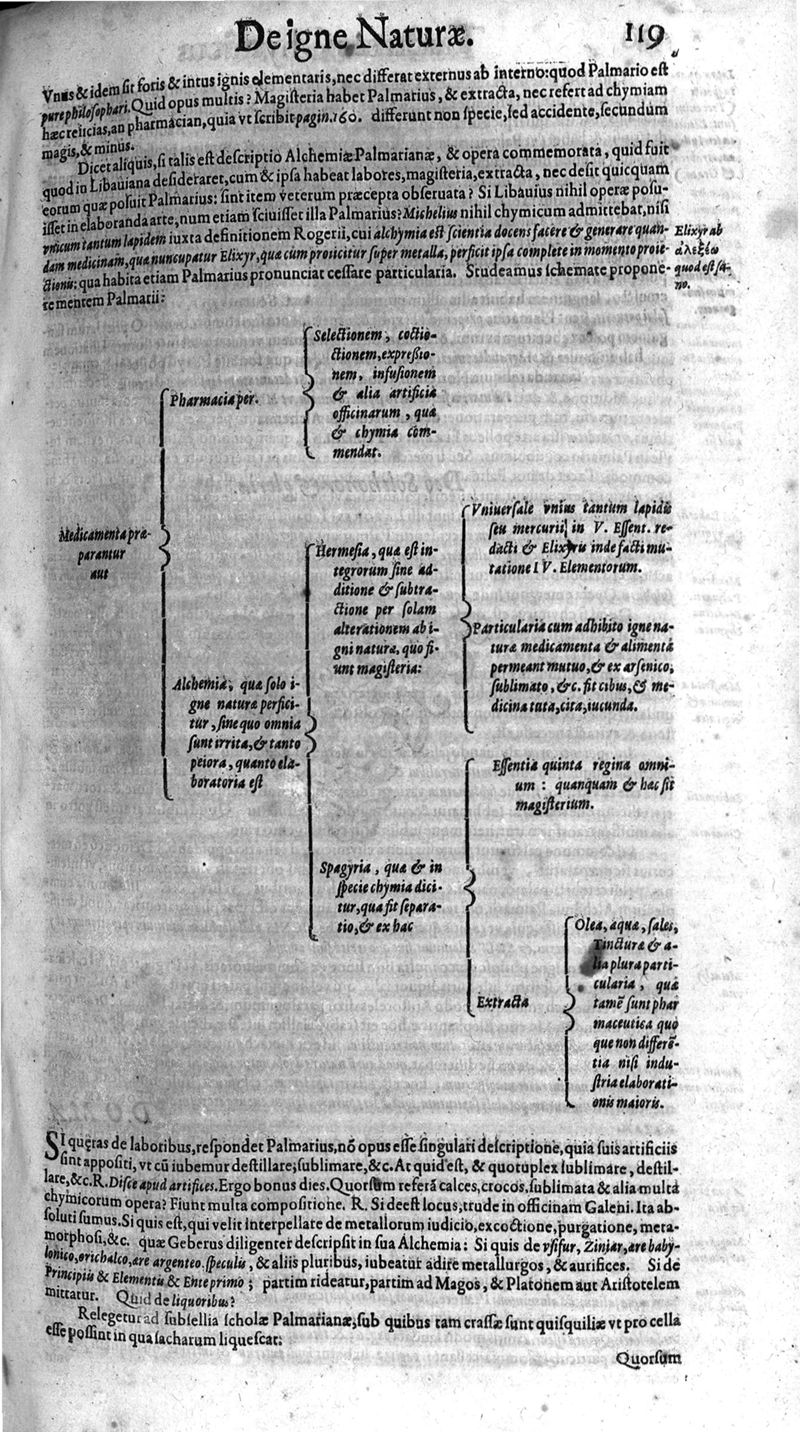 De igne Naturæ. 119
Vnus & idem sit foris & intus ignis elementaris, nec differat externus ab interno: quod Palmario est
pure philosophari. Quid opus multis? Magisteria habet Palmarius, & extracta, nec refert ad chymiam
hæc reiicias, an pharmacian, quia vt scribit pagin. 160. differunt non specie, sed accidente, secundum
magis, & minus.
Dicet aliquis, si talis est descriptio Alchemiæ Palmarianæ, & opera commemorata, quid fuit
quod in Libauiana desideraret, cum & ipsa habeat labores, magisteria, extracta, nec desit quicquam
eorum quæ posuit Palmarius: sint item veterum præcepta obseruata? Si Libauius nihil operæ posu-
isset in elaboranda arte, num etiam sciuisset illa Palmarius? Michelius nihil chymicum admittebat, nisi
vnicum tantum lapidem iuxta definitionem Rogerii, cui alchymia est scientia docens facere & generare quan-
dam medicinam, qua nuncupatur Elixyr, qua cum proiicitur super metalla, perficit ipsa complete in momento proie-
ctionis: qua habita etiam Palmarius pronunciat cessare particularia. Studeamus schemate propone-
re mentem Palmarii:
Elixyr ab
ἀλεξέω
quod est sa-
no.
Medicamenta præ-
parantur
aut
Pharmacia per.
Selectionem, coctio-
ctionem, expreßio-
nem, infusionem
& alia artificia
officinarum, qua
& chymia com-
mendat.
Alchemia, qua solo i-
gne natura perfici-
tur, sine quo omnia
sunt irrita, & tanto
peiora, quanto ela-
boratoria est
Hermesia, qua est in-
tegrorum sine ad-
ditione & subtra-
ctione per solam
alterationem ab i-
gni natura, quo fi-
unt magisteria:
Vniuersale vnius tantum lapidis
seu mercurii in V. Essent. re-
dacti & Elixyris inde facti mu-
tatione IV. Elementorum.
Particularia cum adhibito igne na-
turæ medicamenta & alimenta
permeant mutuo, & ex arsenico,
sublimato, &c. fit cibus, & me-
dicina tuta, cita, iucunda.
Spagyria, qua & in
specie chymia dici-
tur, qua fit separa-
tio, & ex hac
Essentia quinta regina omni-
um: quanquam & hac sit
magisterium.
Extracta
Olea, aqua, sales,
Tincturæ & a-
lia plura parti-
cularia, qua
tamē sunt phar
maceutica quo
que non differē-
tia nisi indu-
stria elaborati-
onis maioris.
SI queras de laboribus, respondet Palmarius, nō opus esse singulari descriptione, quia suis artificiis
sint appositi, vt cū iubemur destillare; sublimare, &c. At quid est, & quotuplex sublimare, destil-
lare, &c. R. Disce apud artifices. Ergo bonus dies. Quorsum referā calces, crocos, sublimata & alia multa
chymicorum opera? Fiunt multa compositione. R. Si deest locus, trude in officinam Galeni. Ita ab-
soluti sumus. Si quis est, qui velit interpellare de metallorum iudicio, excoctione, purgatione, meta-
morphosi, &c. quæ Geberus diligenter descripsit in sua Alchemia: Si quis de vsifur, Zinjar, ære baby-
lonico, orichalco, are argenteo, speculis, & aliis pluribus, iubeatur adire metallurgos, & aurifices. Si de
Principiis & Elementis & Ente primo; partim rideatur, partim ad Magos, & Platonem aut Aristotelem
mittatur. Quid de liquoribus?
Relegetur ad subsellia scholæ Palmarianæ, sub quibus tam crassæ sunt quisquiliæ vt pro cella
esse possint in qua sacharum liquescat:
Quorsum